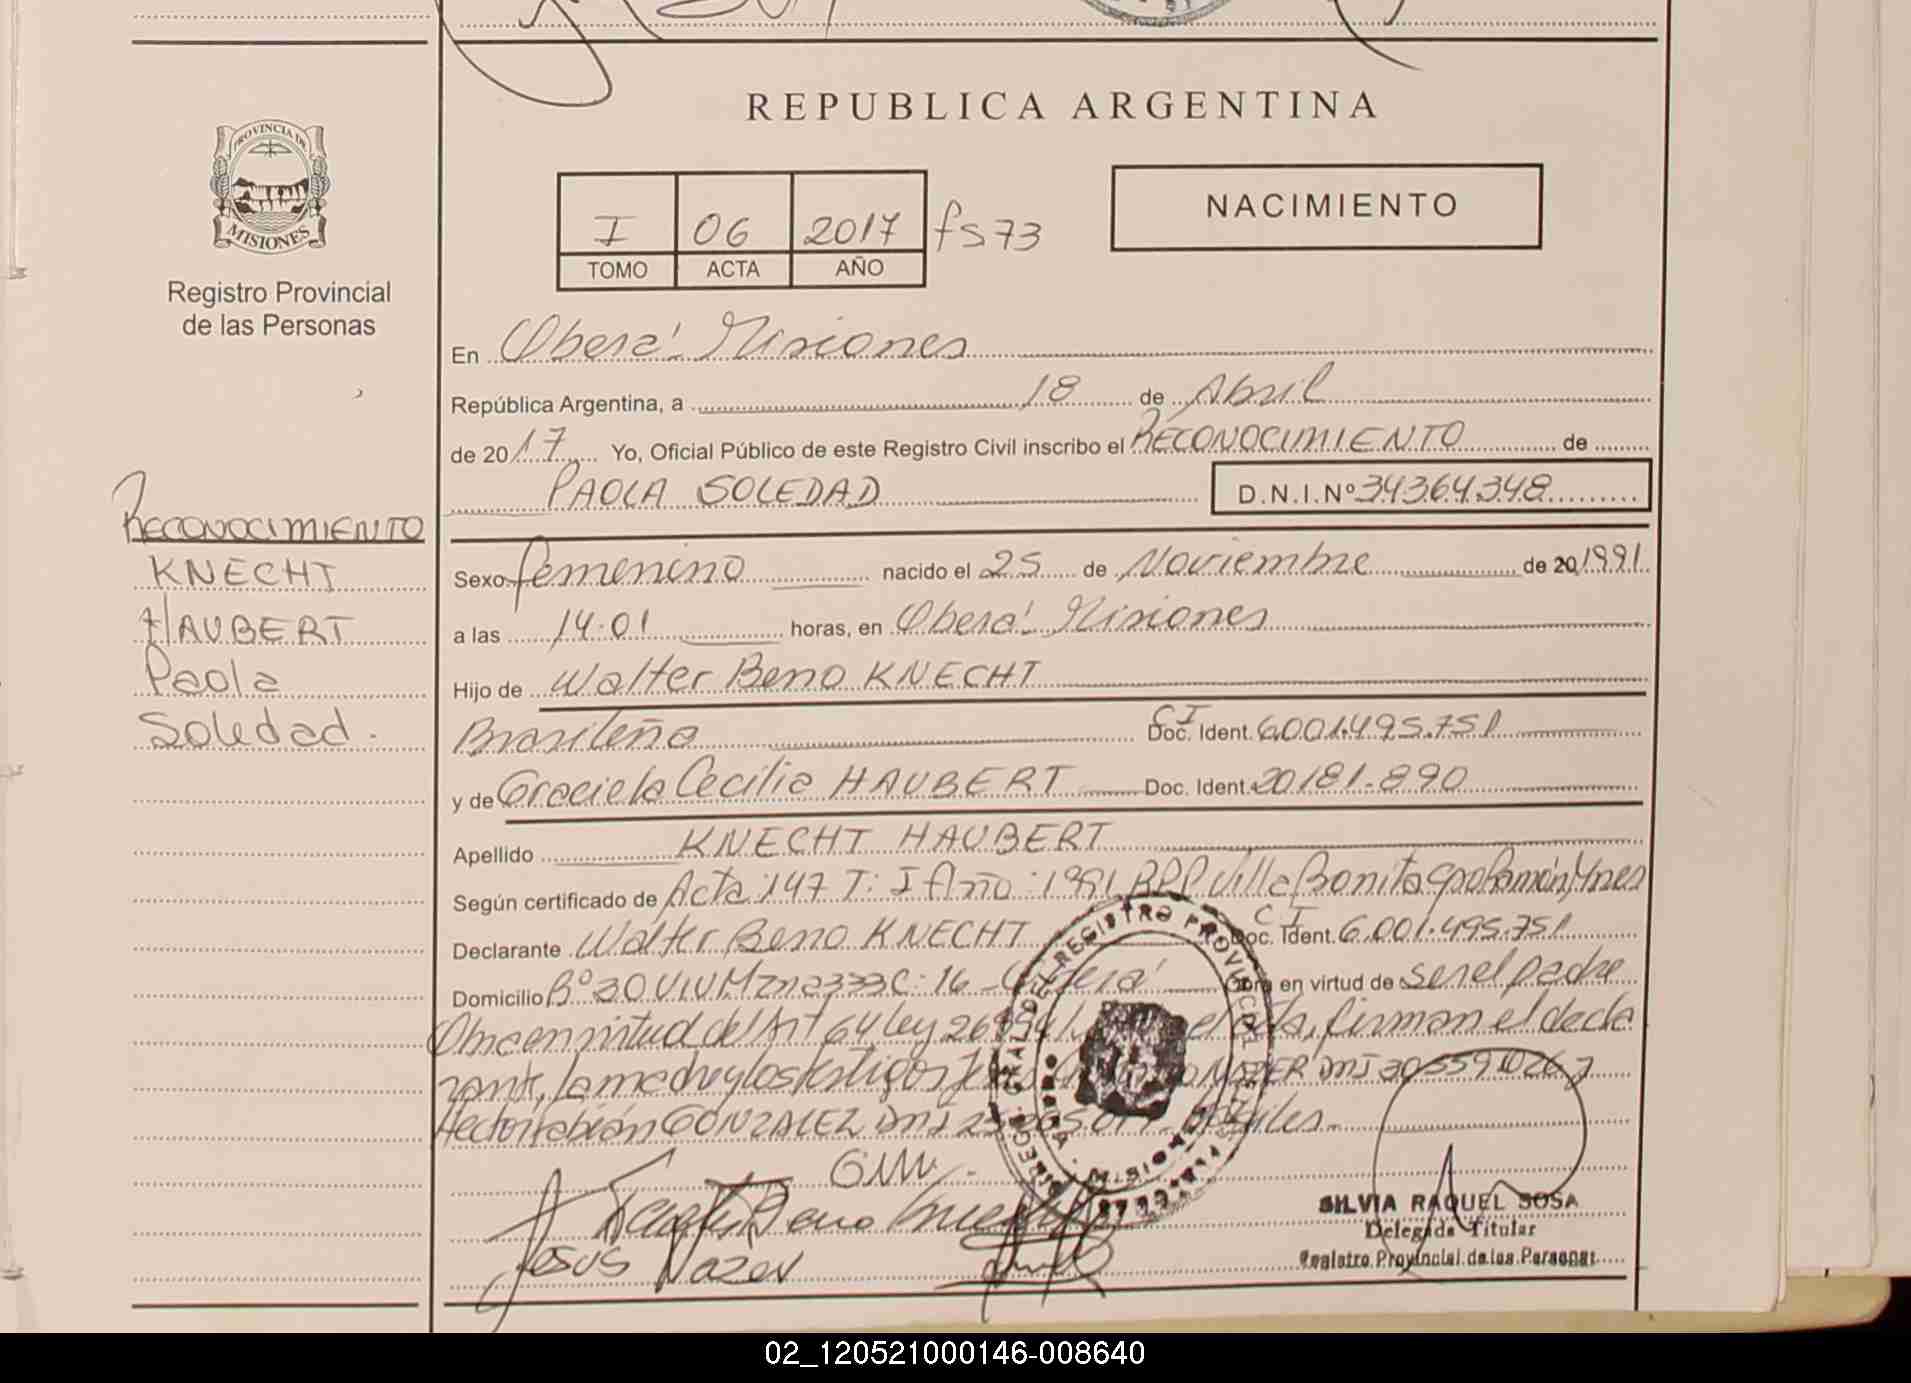 REPUBLICA ARGENTINA
PROVINCIA DE
MISIONES
Registro Provincial
de las Personas
I 06 2017 fs 73
TOMO ACTA AÑO
NACIMIENTO
En Oberá Misiones
República Argentina, a 18 de Abril
de 2017 Yo, Oficial Público de este Registro Civil inscribo el RECONOCIMIENTO de
PAOLA SOLEDAD D.N.I. Nº 34364.348
RECONOCIMIENTO
KNECHT
HAUBERT
Paola
Soledad.
Sexo femenino nacido el 25 de Noviembre de 20 1991
a las 14.01 horas, en Oberá Misiones
Hijo de Walter Beno KNECHT
Brasileña CI Doc. Ident. 6.001.495.751
y de Graciela Cecilia HAUBERT Doc. Ident. 20181.890
Apellido KNECHT HAUBERT
Según certificado de Acta:147 T: I Año:1991 RPP Villa Bonita Cpo Ramón, Mnes
Declarante Walter Beno KNECHT CI Doc. Ident. 6.001.495.751
Domicilio Bº 30 VIV Mzna 333 C:16 - Oberá Obra en virtud de ser el padre
Obra en virtud del Art 64 Ley 26994 el acta, firman el decla
rante, la madre y los testigos NAZER DNI
Hector Fabián GONZALEZ DNI hábiles.
Beno Knecht
Jesus Nazer
SILVIA RAQUEL SOSA
Delegada Titular
Registro Provincial de las Personas
02_120521000146-008640